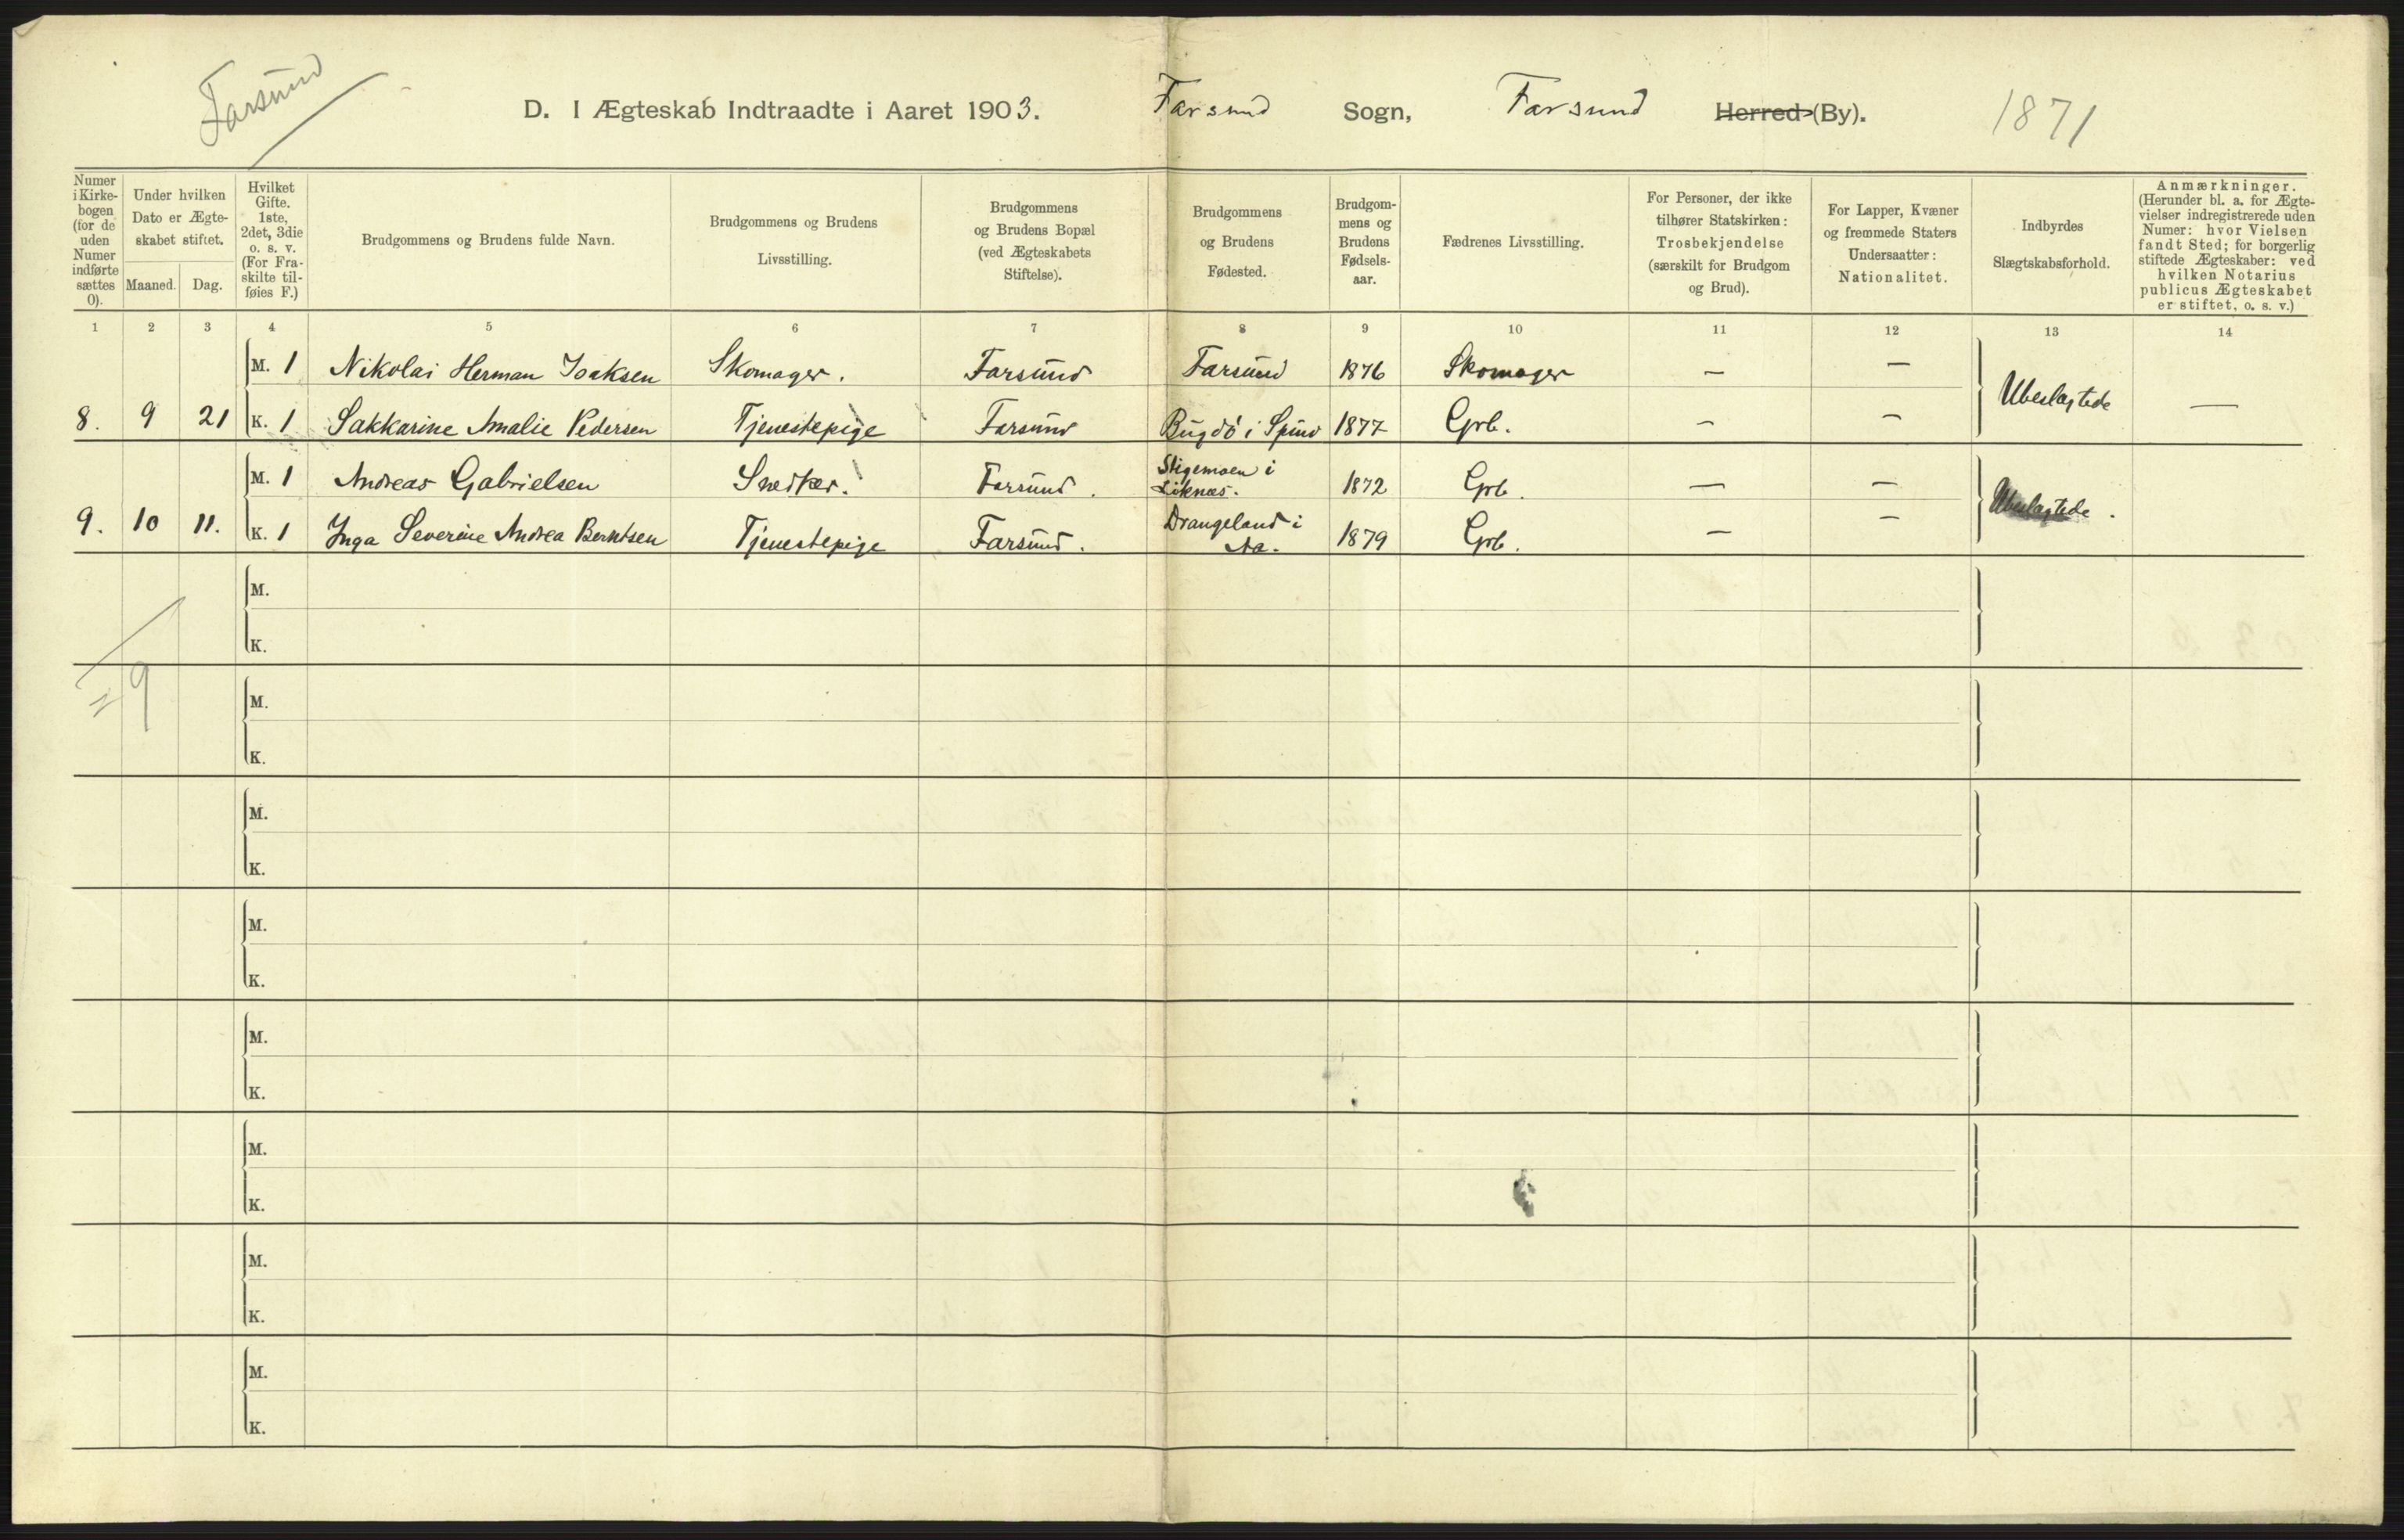 Farsund
D. I Ægteskab Indtraadte i Aaret 1903. Farsund Sogn, Farsund Herred (By). 1871
Numer i Kirke- bogen (for de uden Numer indførte sættes 0).
Under hvilken Dato er Ægte- skabet stiftet.
Maaned. Dag.
Hvilket Gifte. 1ste, 2det, 3die o. s. v. (For Fra- skilte til- føies F.)
Brudgommens og Brudens fulde Navn.
Brudgommens og Brudens Livsstilling.
Brudgommens og Brudens Bopæl (ved Ægteskabets Stiftelse).
Brudgommens og Brudens Fødested.
Brudgom- mens og Brudens Fødsels- aar.
Fædrenes Livsstilling.
For Personer, der ikke tilhører Statskirken: Trosbekjendelse (særskilt for Brudgom og Brud).
For Lapper, Kvæner og fremmede Staters Undersaatter: Nationalitet.
Indbyrdes Slægtskabsforhold.
Anmærkninger. (Herunder bl. a. for Ægte- vielser indregistrerede uden Numer: hvor Vielsen fandt Sted; for borgerlig stiftede Ægteskaber: ved hvilken Notarius publicus Ægteskabet er stiftet, o. s. v.)
1 2 3 4 5 6 7 8 9 10 11 12 13 14
M. 1 Nikolai Herman Isaksen Skomager. Farsund Farsund 1876 Skomager — —
Ubeslægtede —
8. 9 21 K. 1 Sakkarine Amalie Pedersen Tjenestepige Farsund Bugdö i Spind 1877 Grb. — —
M. 1 Andreas Gabrielsen Snedker. Farsund. Stigemoen i Liknæs. 1872 Grb. — —
Ubeslægtede.
9. 10 11. K. 1 Inga Severine Andrea Berntsen Tjenestepige Farsund. Drangeland i Aa. 1879 Grb. — —
M.
K.
= 9
M.
K.
M.
K.
M.
K.
M.
K.
M.
K.
M.
K.
M.
K.